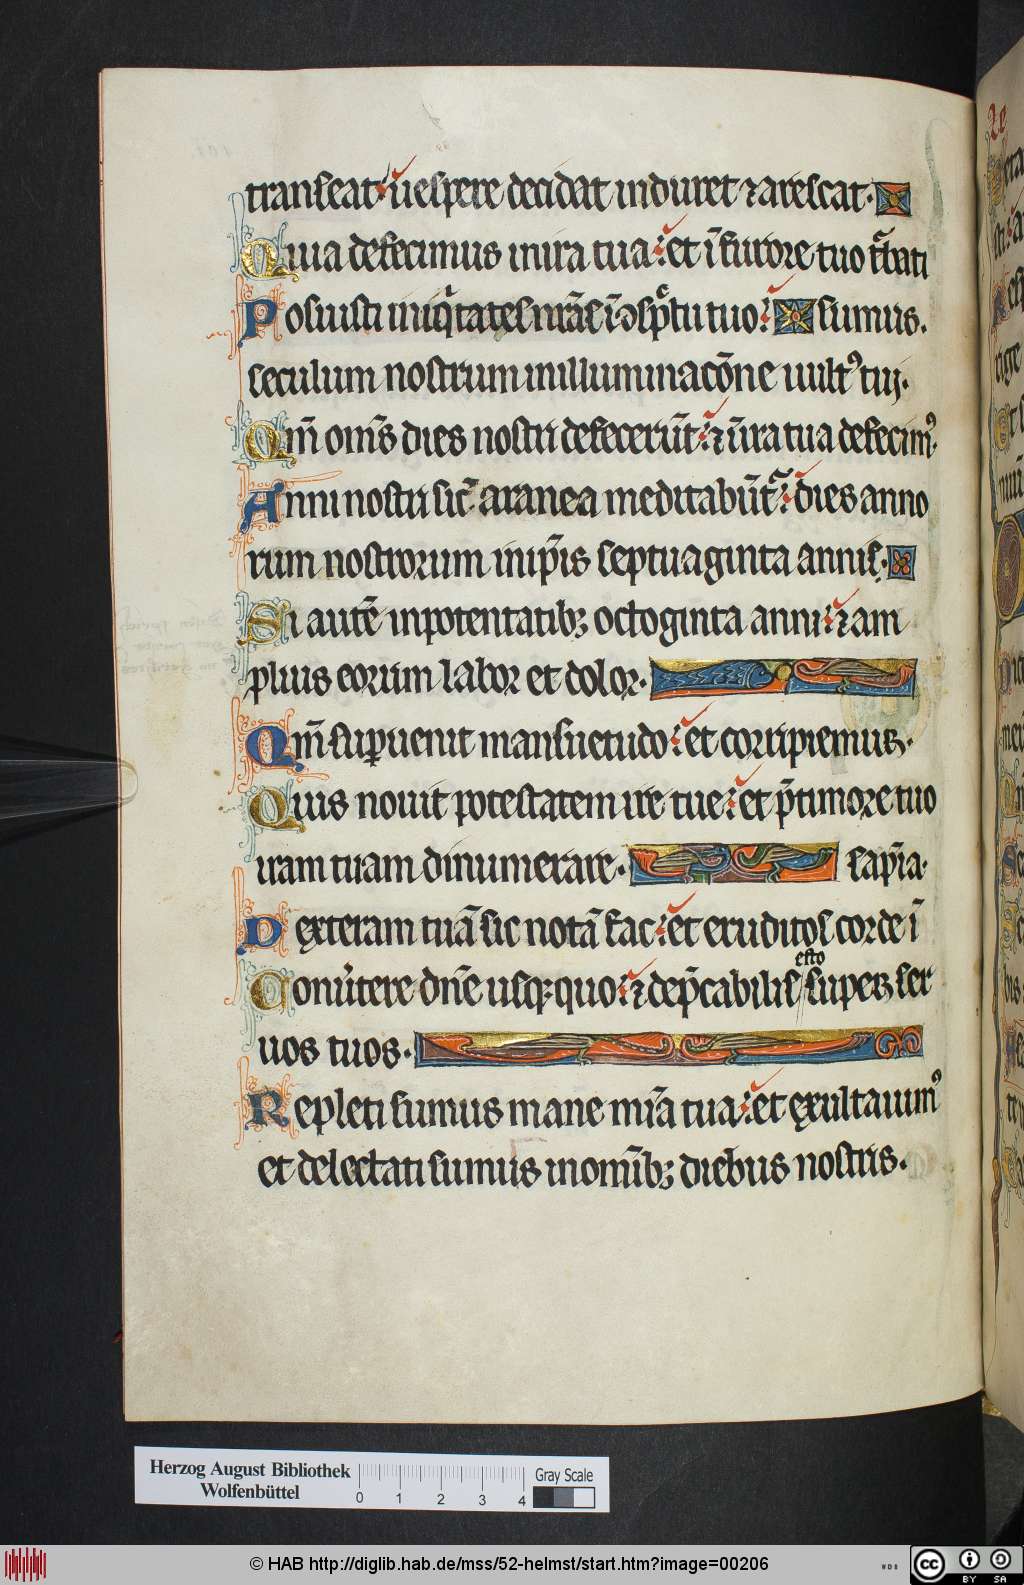 transeat· uespere decidat induret ⁊ arescat·
Quia defecimus in ira tua· et ī furore tuo t̄bati
Posuisti iniq̄tates nr̄as ī ɔspc̄tu tuo· sumus.
seculum nostrum in illuminacōne uultꝰ tui·
Qm̄ om̄s dies nostri defecerūt· ⁊ in ira tua defecimꝰ·
Anni nostri sic̄ aranea meditabūt᷑· dies anno
rum nostrorum in ip̄is septuaginta annis·
Si autē in potentatibꝫ octoginta anni· ⁊ am
plius eorum labor et dolor·
Qm̄ suꝑuenit mansuetudo· et corripiemur·
Quis nouit potestatem ire tue· et p̄ timore tuo
iram tuam dinumerare· sapīa·
Dexteram tuā sic notā fac· et eruditos corde ī
Conūtere dn̄e usqꝫ quo· ⁊ dep̄cabilis esto super ser
uos tuos·
Repleti sumus mane mīa tua· et exultauimꝰ
et delectati sumus in omībꝫ diebus nostris·
Herzog August Bibliothek
Wolfenbüttel
0 1 2 3 4
Gray Scale
© HAB http://diglib.hab.de/mss/52-helmst/start.htm?image=00206
WDB
cc BY SA